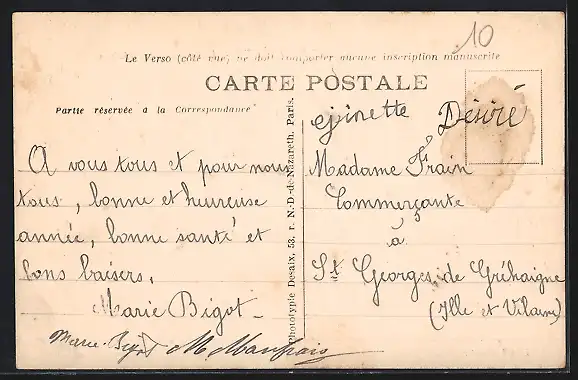 10
Le Verso (côté vue) ne doit comporter aucune inscription manuscrite
CARTE POSTALE
Partie réservée à la Correspondance
ginette Désiré
A vous tous et pour nous
tous, bonne et heureuse
année, bonne santé et
bons baisers.
Marie Bigot
Marie Bigot M Maufrais
Phototypie Desaix, 53, r. N.-D.-de-Nazareth, Paris.
Madame Frain
Commerçante
à
St Georges de Gréhaigne
(Ille et Vilaine)